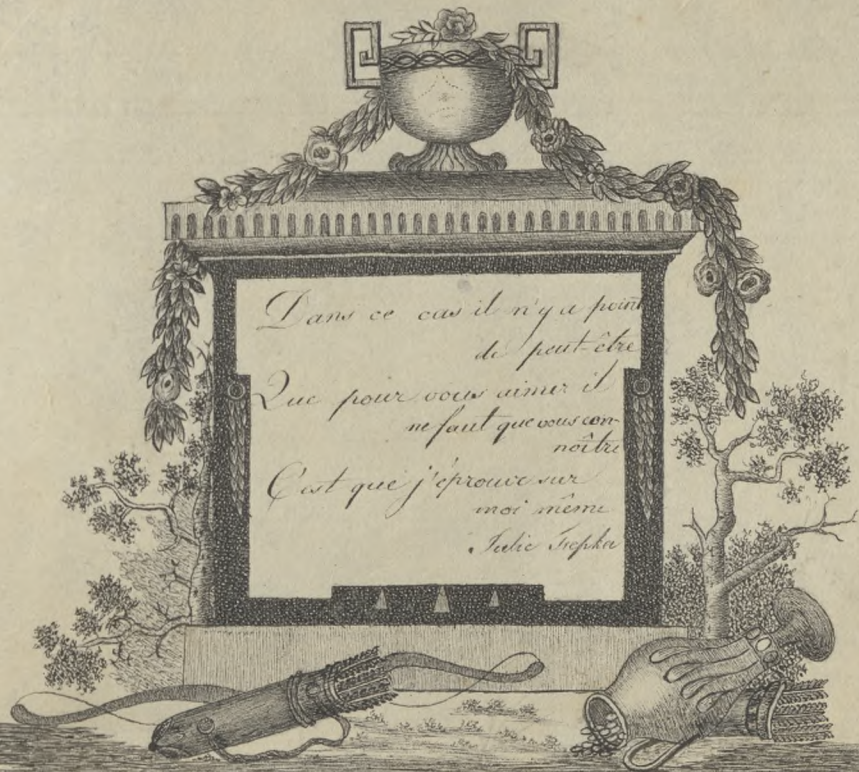 Dans ce cas il n'y a point
de peut-être
Que pour vous aimer il
ne faut que vous con-
noître
C'est que j'éprouve sur
moi même
Julie Trepka